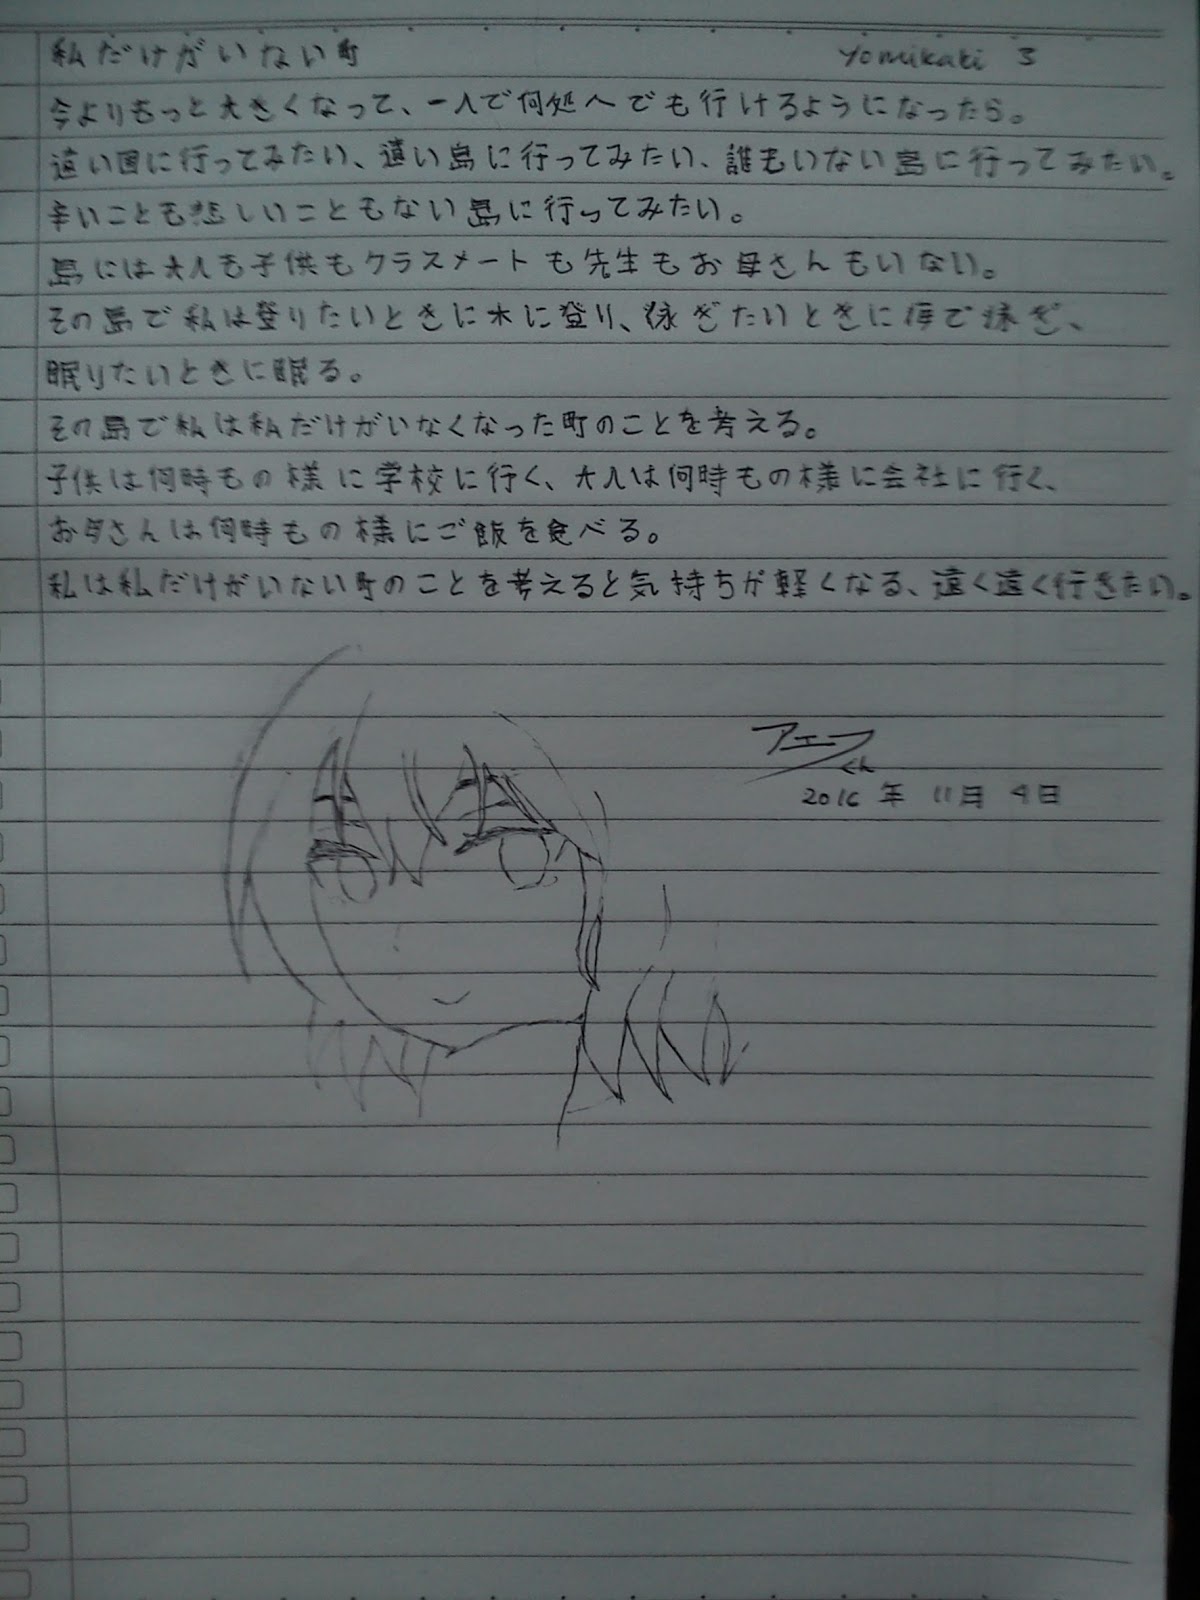 私だけがいない町
Yomikaki 3
今よりもっと大きくなって、一人で何処へでも行けるようになったら。
遠い国に行ってみたい、遠い島に行ってみたい、誰もいない島に行ってみたい。
辛いことも悲しいこともない島に行ってみたい。
島には大人も子供もクラスメートも先生もお母さんもいない。
その島で私は登りたいときに木に登り、泳ぎたいときに海で泳ぎ、
眠りたいときに眠る。
その島で私は私だけがいなくなった町のことを考える。
子供は何時もの様に学校に行く、大人は何時もの様に会社に行く、
お母さんは何時もの様にご飯を食べる。
私は私だけがいない町のことを考えると気持ちが軽くなる、遠く遠く行きたい。
アエフ
くん
2016 年 11月 4日